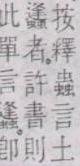 按釋蟲言土
蠭者。許書則
此單言蠭。卽